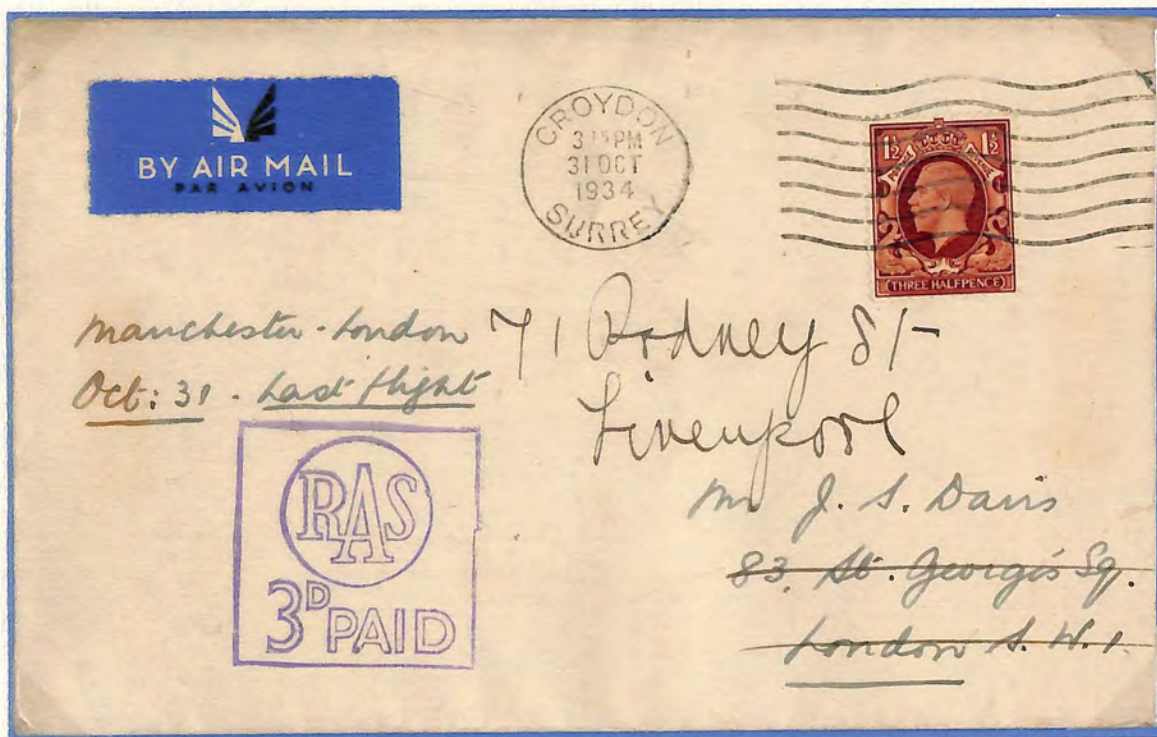 BY AIR MAIL
PAR AVION
CROYDON
3 15 PM
31 OCT
1934
SURREY
1½ 1½
POSTAGE REVENUE
(THREE HALFPENCE)
Manchester - London
Oct: 31 - Last flight
71 Rodney St
Liverpool
RAS
3D PAID
Mr J. S. Davis
83, St. George's Sq.
London S. W. 1.